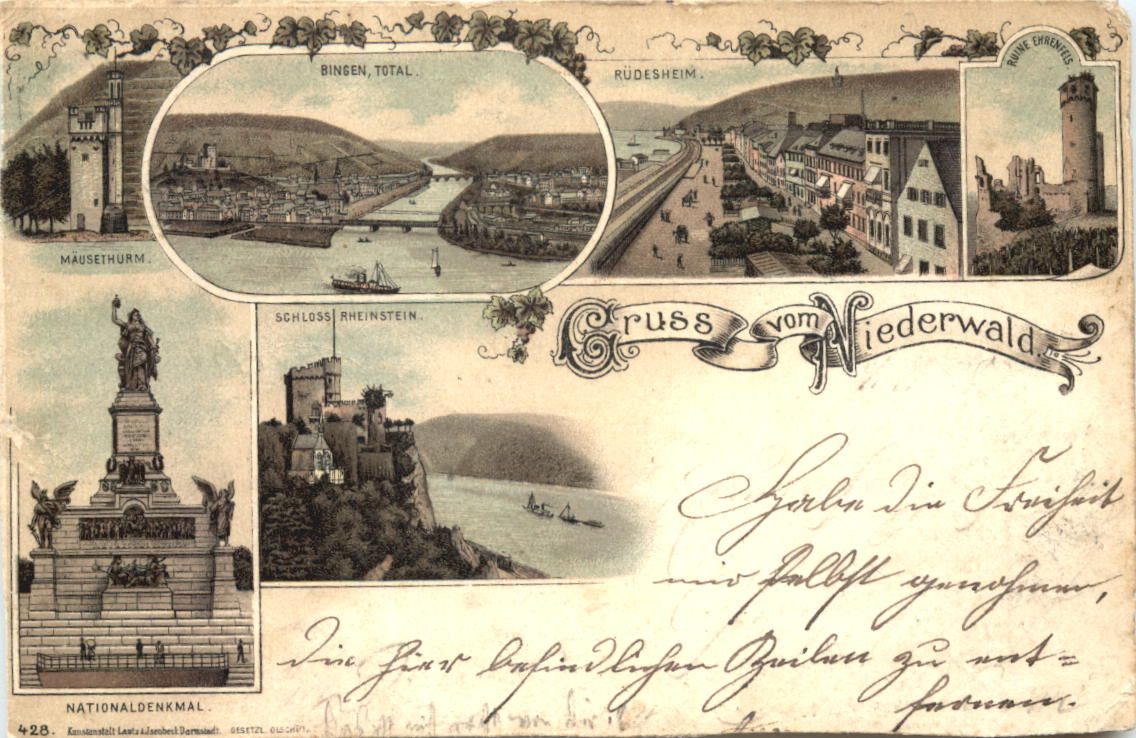 BINGEN, TOTAL.
RÜDESHEIM.
RUINE EHRENFELS
MÄUSETHURM.
SCHLOSS RHEINSTEIN.
Gruss vom Niederwald.
Habe die Freiheit
mir selbst genohmen,
die hier befindlichen Zeilen zu ent=
fernen.
NATIONALDENKMAL.
428. Kunstanstalt Lautz & Jsenbeck Darmstadt. GESETZL. GESCHÜTZT.
von Dir